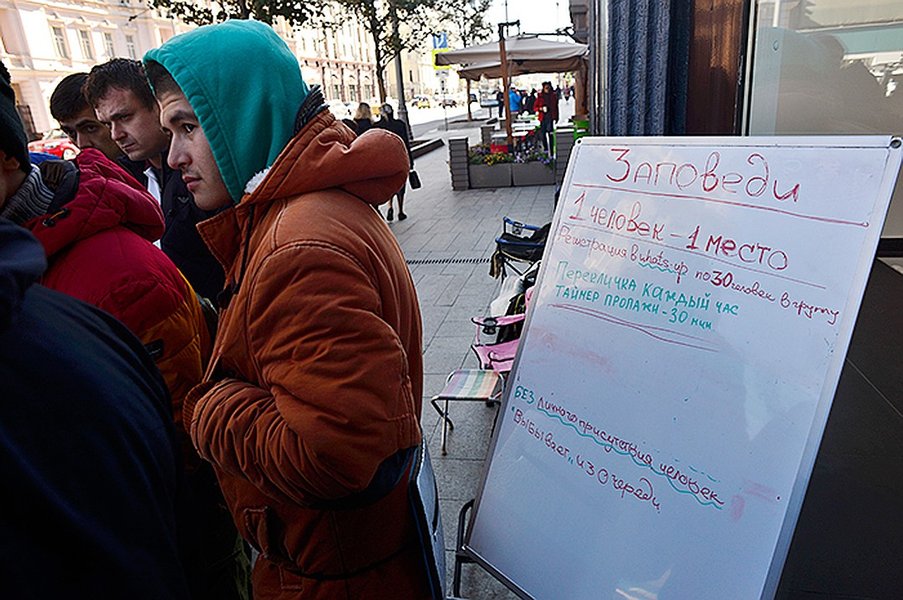 Заповеди
1 человек - 1 место
Регистрация в whats-up по 30 человек в группу
Перекличка каждый час
ТАЙНЕР ПРОПАЖИ - 30 мин
БЕЗ личного присутствия человек
"Выбывает" из очереди